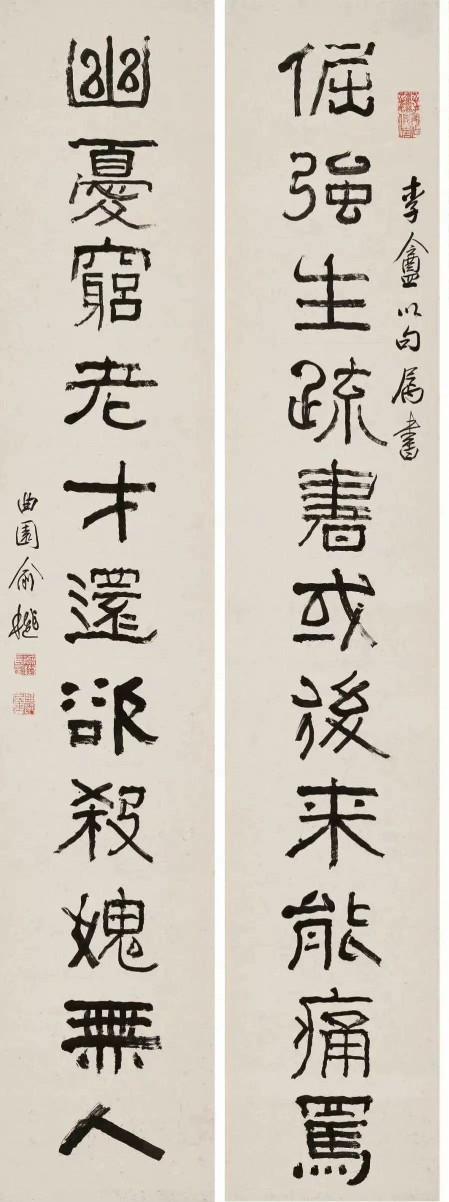 李盦以句属書
倔強生疏書或後来能痛罵
幽憂窮老才還郤殺媿無人
曲園俞樾